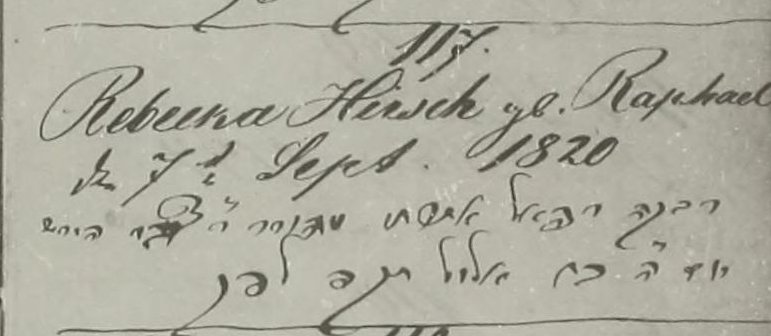 117.
Rebecka Hirsch gb. Raphael
d. 7 t Sept. 1820
רבקה רפאל אשת ר' הירש
יום ה' כח אלול תקפ לפק